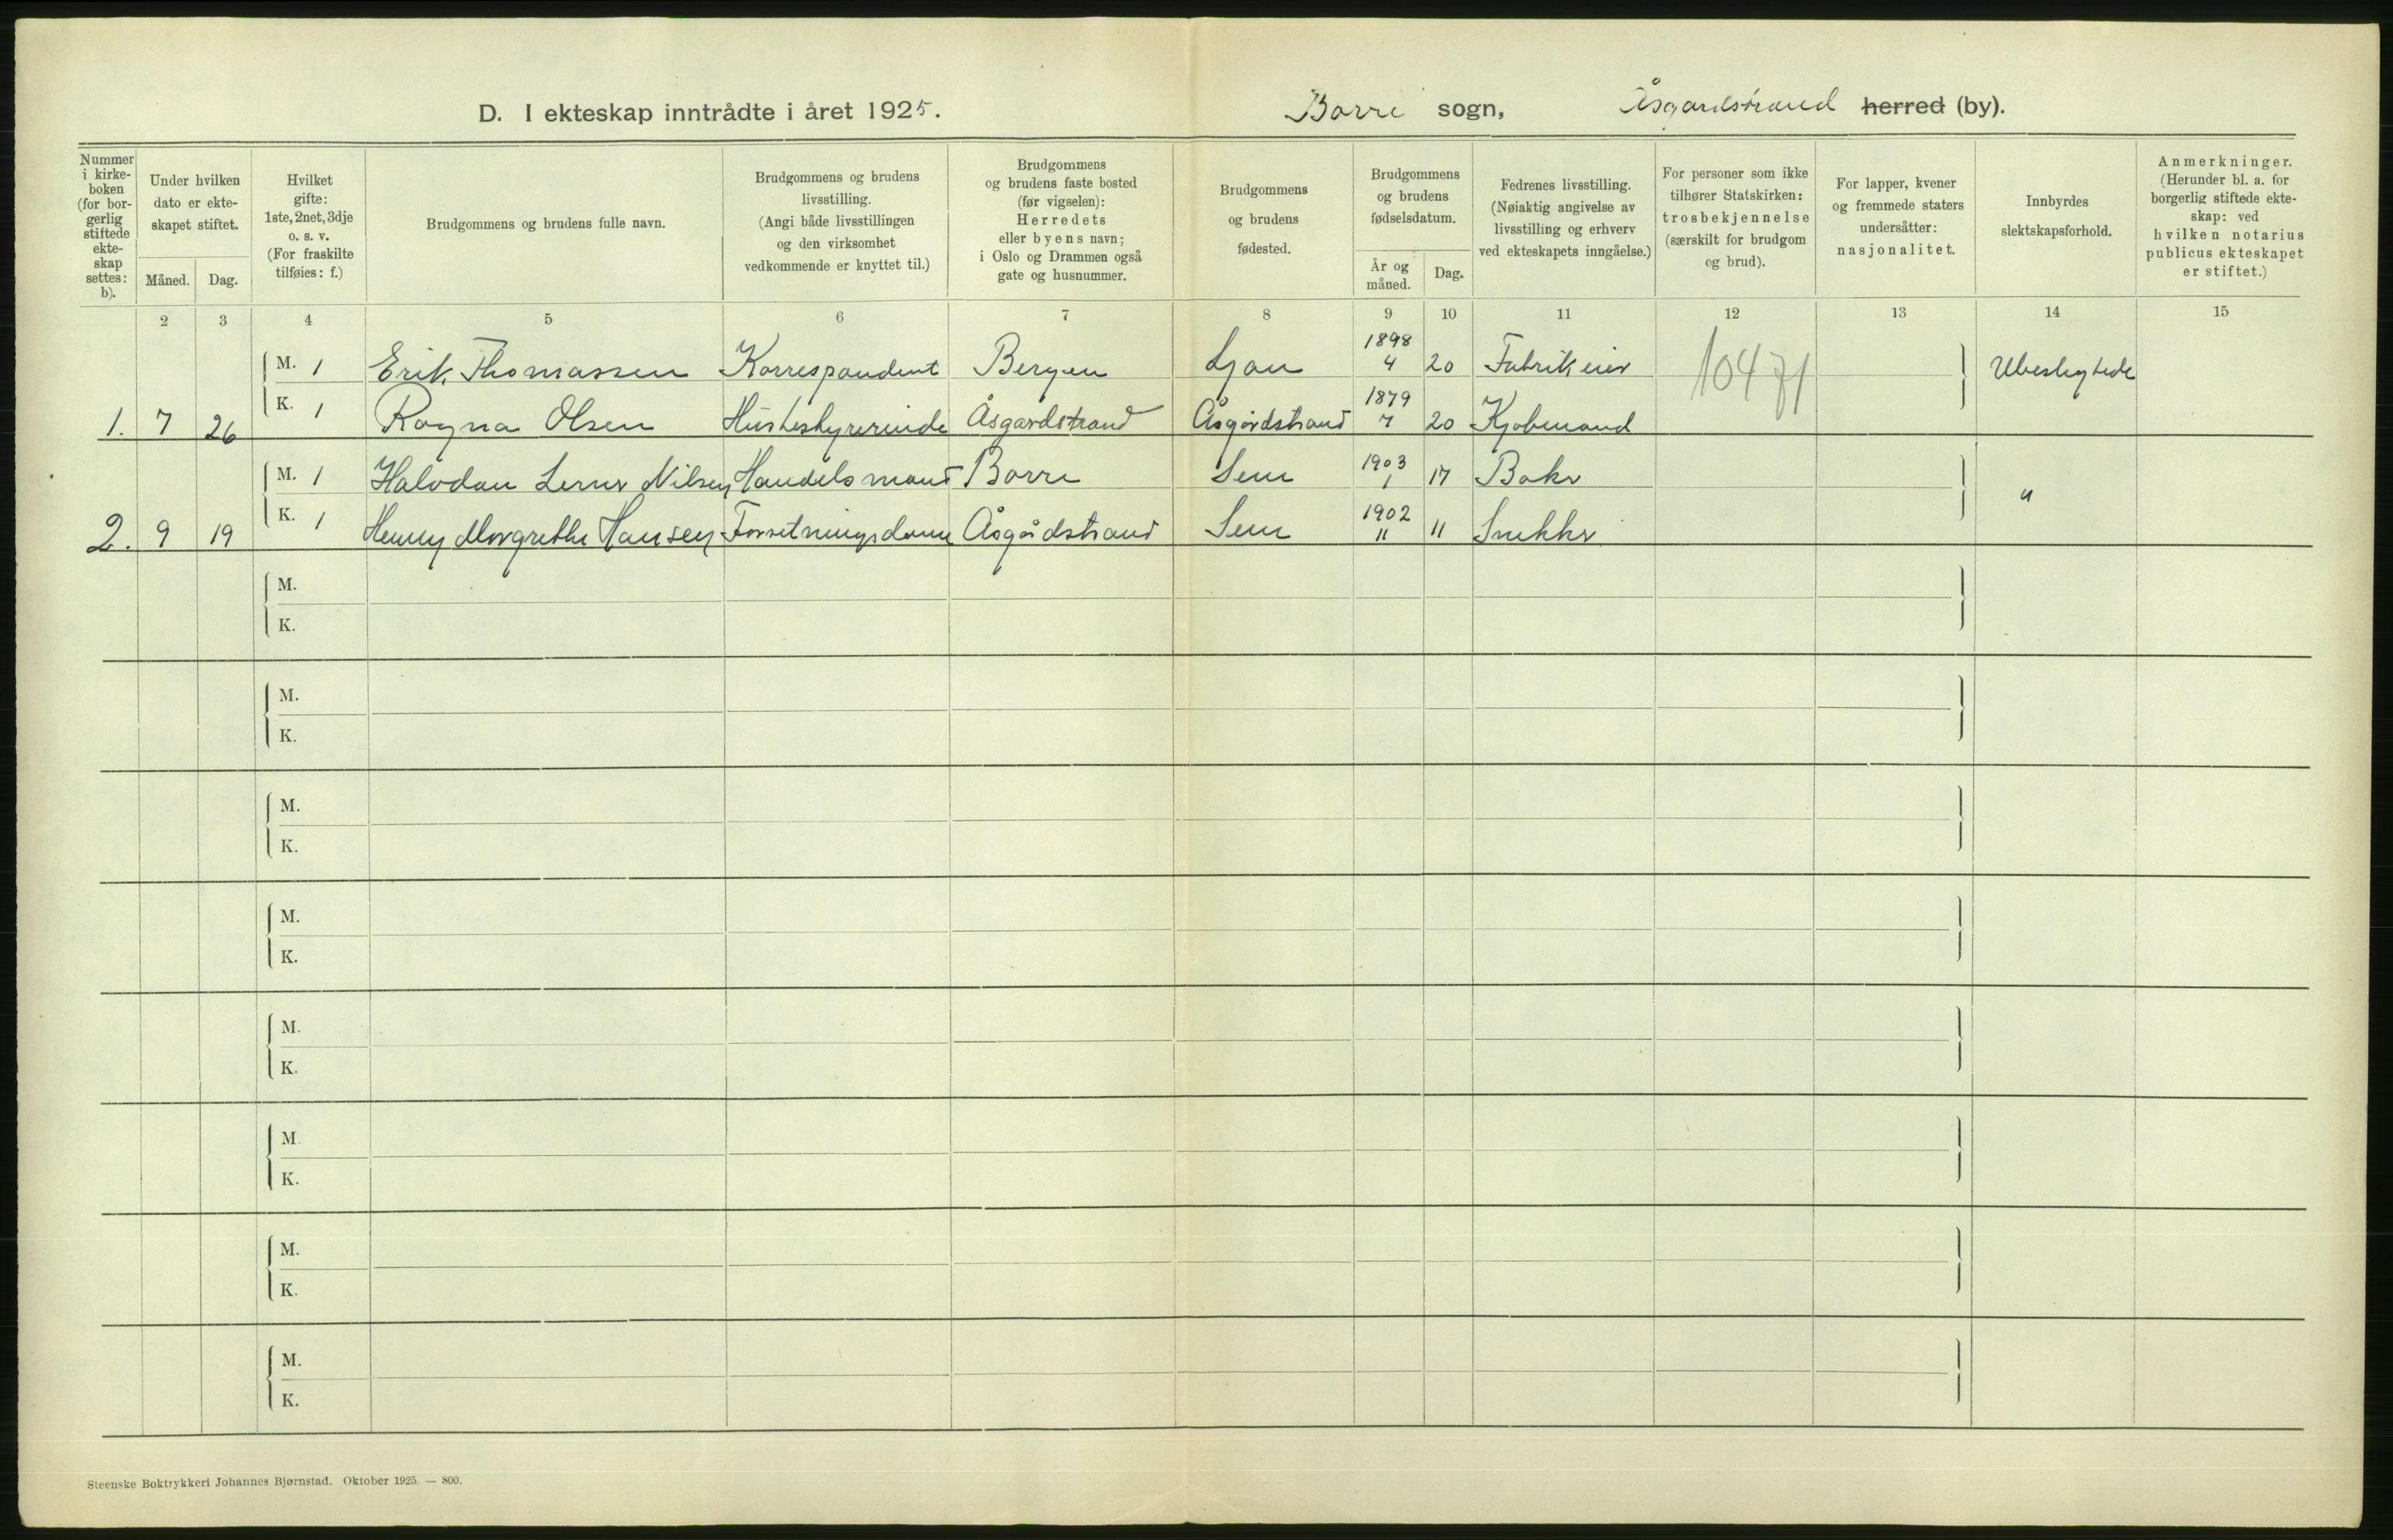 D. I ekteskap inntrådte i året 1925.
Borre sogn, Åsgardstrand herred (by).
Nummer i kirke-boken (for bor-gerlig stiftede ekte-skap settes: b).
Under hvilken dato er ekte-skapet stiftet.
Måned. Dag.
Hvilket gifte: 1ste, 2net, 3dje o. s. v. (For fraskilte tilføies: f.)
Brudgommens og brudens fulle navn.
Brudgommens og brudens livsstilling. (Angi både livsstillingen og den virksomhet vedkommende er knyttet til.)
Brudgommens og brudens faste bosted (før vigselen): Herredets eller byens navn; i Oslo og Drammen også gate og husnummer.
Brudgommens og brudens fødested.
Brudgommens og brudens fødselsdatum.
År og måned. Dag.
Fedrenes livsstilling. (Nøiaktig angivelse av livsstilling og erhverv ved ekteskapets inngåelse.)
For personer som ikke tilhører Statskirken: trosbekjennelse (særskilt for brudgom og brud).
For lapper, kvener og fremmede staters undersåtter: nasjonalitet.
Innbyrdes slektskapsforhold.
Anmerkninger. (Herunder bl. a. for borgerlig stiftede ekte-skap: ved hvilken notarius publicus ekteskapet er stiftet.)
2 3 4 5 6 7 8 9 10 11 12 13 14 15
M. 1 Erik Thomassen Korrespondent Bergen Ljan 1898 4 20 Fabrikeier 10471 Ubeslegtede
1. 7 26 K. 1 Ragna Olsen Husbestyrerinde Åsgardstrand Åsgårdstrand 1879 7 20 Kjøbmand
M. 1 Halvdan Nilsen Handelsmand Borre Sem 1903 1 17 Baker "
2. 9 19 K. 1 Henny Margrethe Hansen Forretningsdame Åsgådstrand Sem 1902 11 11 Snekker
M.
K.
M.
K.
M.
K.
M.
K.
M.
K.
M.
K.
M.
K.
M.
K.
Steenske Boktrykkeri Johannes Bjørnstad. Oktober 1925. — 800.